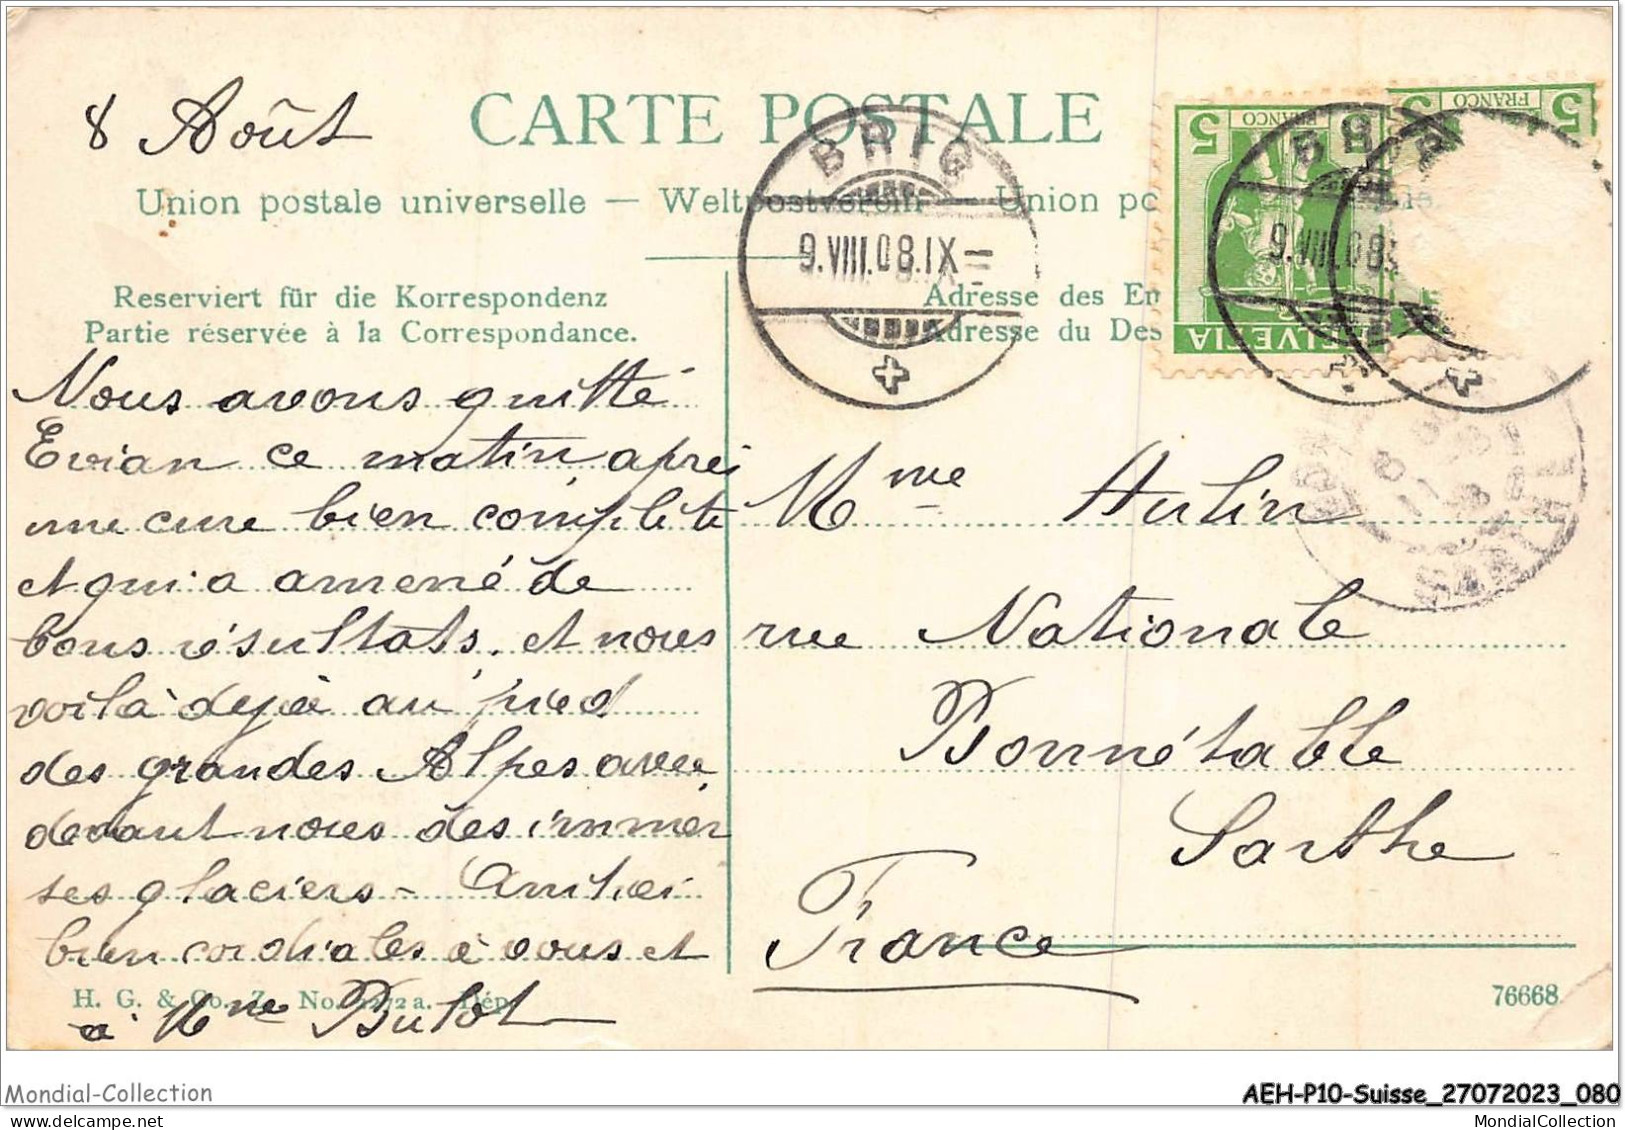 8 Août
CARTE POSTALE
Union postale universelle — Weltpostverein — Union po
Reserviert für die Korrespondenz
Partie réservée à la Correspondance.
Adresse des Em
Adresse du Des
BRIG
9.VIII.08.IX
5 FRANCO
HELVETIA
5 FRANCO
BRIG
9.VIII.08
SARTHE
Nous avons quitté
Evian ce matin après
une cure bien complète
et qui a amené de
bons résultats. et nous
voilà dejà au pied
des grandes Alpes avec
devant nous des immen
ses glaciers – Amitiés
bien cordiales à vous et
à Mme Bulot
Mme Aulin
rue Nationale
Bonnétable
Sarthe
France
H. G. & Co., Z. No. a. Dép.
76668
Mondial-Collection
AEH-P10-Suisse_27072023_080
MondialCollection